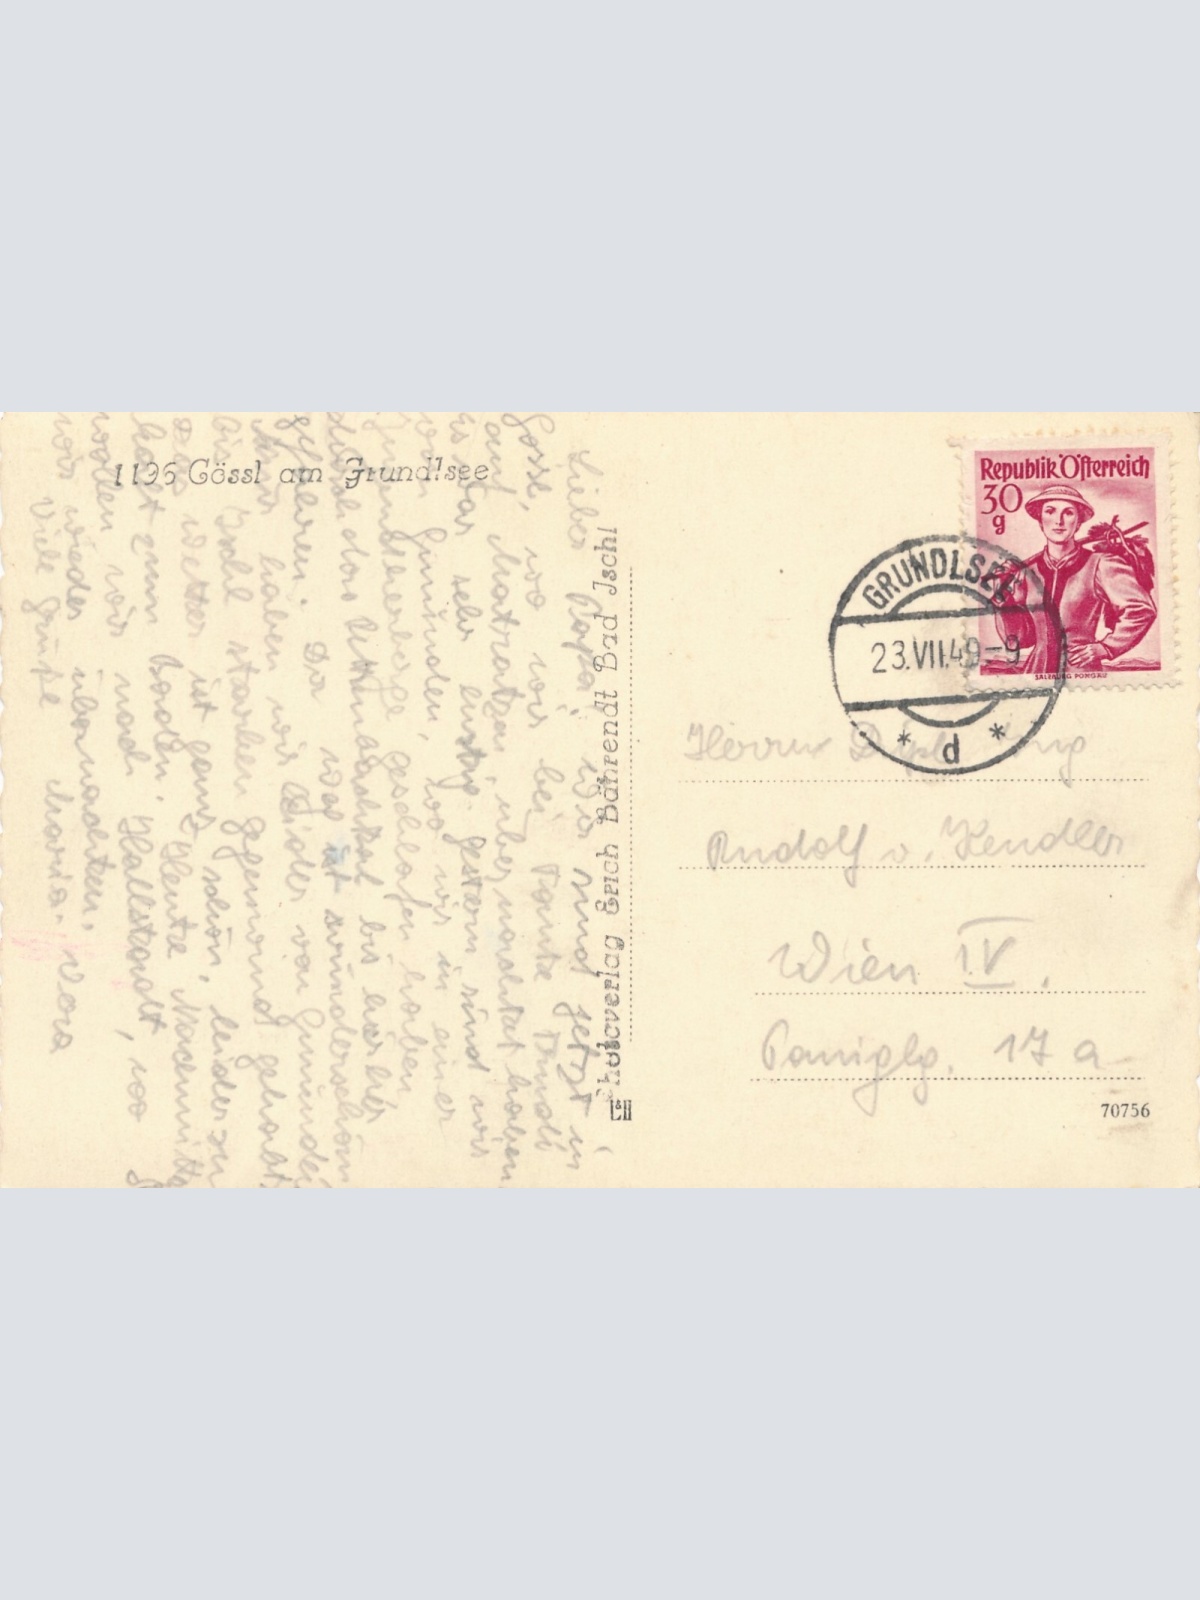 1196 Gössl am Grundlsee
Lieber Papa! Wir sind jetzt in
Gössl, wo wir bei Tante
auf Matratzen übernachtet haben
es war sehr lustig. Gestern sind wir
von Gmunden, wo wir in einer
geschlafen haben,
durch das bis hierher
gefahren. Da war es wunderschön
nur haben wir leider von Gmunden
bis Ischl starken gegenwind gehabt.
Das Wetter ist ganz schön, leider zu
kalt zum baden. Heute Nachmittag
wollen wir nach Hallstadt, wo
wir wieder übernachten.
Viele Grüße Maria. Vera
Photoverlag Erich Bährendt Bad Ischl
Republik Österreich
30
g
SALZBURG PONGAU
GRUNDLSEE
23.VII.49-9
* d *
Herrn Dipl. Ing
Rudolf v. Kendler
Wien IV.
Paniglg. 17 a
70756